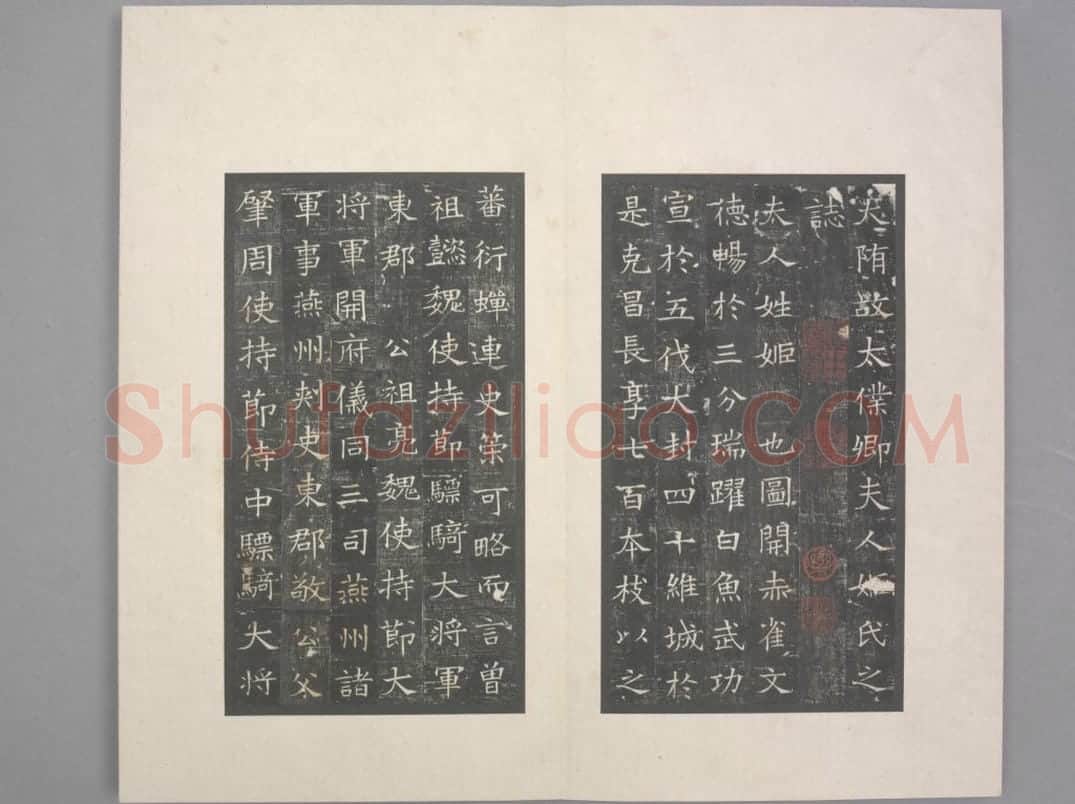 大隋故太僕卿夫人姬氏之
誌
夫人姓姬也圖開赤雀文
德暢於三分瑞躍白魚武功
宣於五伐大封四十維城於
是克昌長享七百本枝以之
蕃衍蟬連史筞可略而言曾
祖懿魏使持節驃騎大將軍
東郡公祖亮魏使持節大
將軍開府儀同三司燕州諸
軍事燕州刾史東郡敬公父
肇周使持節侍中驃騎大將
Shufaziliao.COM